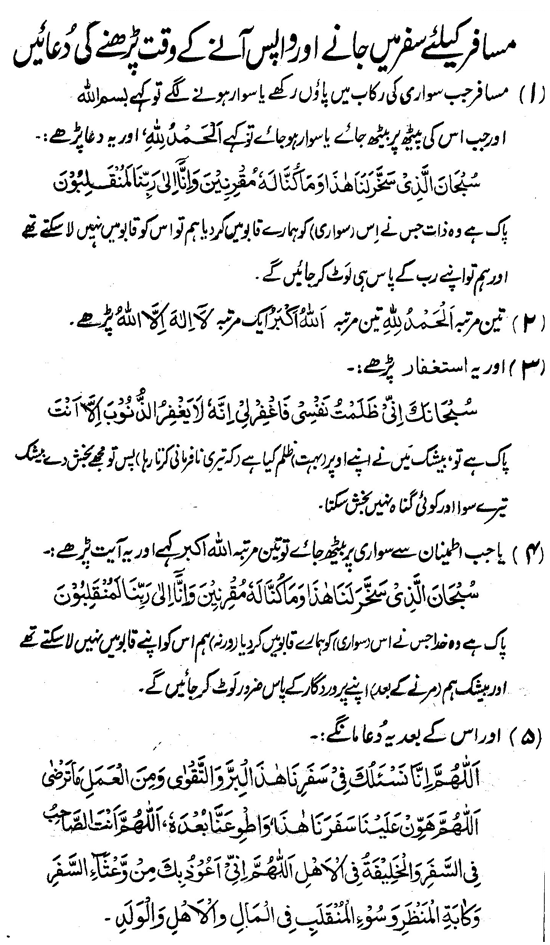 مسافر کیلئے سفر میں جانے اور واپس آنے کے وقت پڑھنے کی دُعائیں
(۱) مسافر جب سواری کی رکاب میں پاؤں رکھے یا سوار ہونے لگے تو کہے بسم اللہ
اور جب اس کی پیٹھ پر بیٹھ جائے یا سوار ہو جائے تو کہے اَلْحَمْدُ لِلّٰہِ، اور یہ دعا پڑھے:۔
سُبْحَانَ الَّذِیْ سَخَّرَ لَنَا ھٰذَا وَمَا کُنَّا لَہٗ مُقْرِنِیْنَ وَاِنَّا اِلٰی رَبِّنَا لَمُنْقَلِبُوْنَ
پاک ہے وہ ذات جس نے اِس (سواری) کو ہمارے قابو میں کر دیا ہم تو اس کو قابو میں نہیں لا سکتے تھے
اور ہم تو اپنے رب کے پاس ہی لَوٹ کر جائیں گے۔
(۲) تین مرتبہ اَلْحَمْدُ لِلّٰہِ تین مرتبہ اَللّٰہُ اَکْبَرُ ایک مرتبہ لَآ اِلٰہَ اِلَّا اللّٰہُ پڑھے۔
(۳) اور یہ استغفار پڑھے:۔
سُبْحَانَکَ اِنِّیْ ظَلَمْتُ نَفْسِیْ فَاغْفِرْ لِیْ اِنَّہٗ لَا یَغْفِرُ الذُّنُوْبَ اِلَّا اَنْتَ
پاک ہے تو، بیشک میں نے اپنے اوپر (بہت) ظلم کیا ہے (کہ تیری نافرمانی کرتا رہا) پس تو مجھے بخش دے بیشک
تیرے سوا اور کوئی گناہ نہیں بخش سکتا۔
(۴) یا جب اطمینان سے سواری پر بیٹھ جائے تو تین مرتبہ اللہ اکبر کہے اور یہ آیت پڑھے:۔
سُبْحَانَ الَّذِیْ سَخَّرَ لَنَا ھٰذَا وَمَا کُنَّا لَہٗ مُقْرِنِیْنَ وَاِنَّا اِلٰی رَبِّنَا لَمُنْقَلِبُوْنَ
پاک ہے وہ خدا جس نے اس (سواری) کو ہمارے قابو میں کر دیا (ورنہ) ہم اس کو اپنے قابو میں نہیں لا سکتے تھے
اور بیشک ہم (مرنے کے بعد) اپنے پروردگار کے پاس ضرور لَوٹ کر جائیں گے۔
(۵) اور اس کے بعد یہ دُعا مانگے:۔
اَللّٰھُمَّ اِنَّا نَسْئَلُکَ فِیْ سَفَرِنَا ھٰذَا الْبِرَّ وَالتَّقْوٰی وَمِنَ الْعَمَلِ مَا تَرْضٰی
اَللّٰھُمَّ ھَوِّنْ عَلَیْنَا سَفَرَنَا ھٰذَا، وَاطْوِ عَنَّا بُعْدَہٗ، اَللّٰھُمَّ اَنْتَ الصَّاحِبُ
فِی السَّفَرِ وَالْخَلِیْفَۃُ فِی الْاَھْلِ اَللّٰھُمَّ اِنِّیْ اَعُوْذُ بِکَ مِنْ وَّعْثَآءِ السَّفَرِ
وَکَابَۃِ الْمَنْظَرِ وَسُوْءِ الْمُنْقَلَبِ فِی الْمَالِ وَالْاَھْلِ وَالْوَلَدِ۔